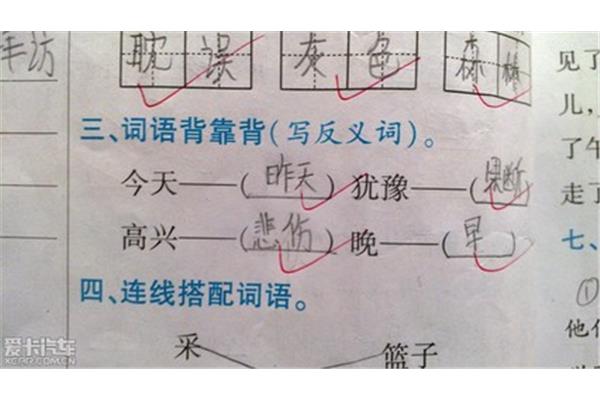 耽误 灰色 森林
三、词语背靠背(写反义词)。
今天——(昨天) 犹豫——(果断)
高兴——(悲伤) 晚——(早)
四、连线搭配词语。
采 篮子
见了
儿,
了午
走了
七、
①
他们
爱卡汽车
XCAR.COM.CN